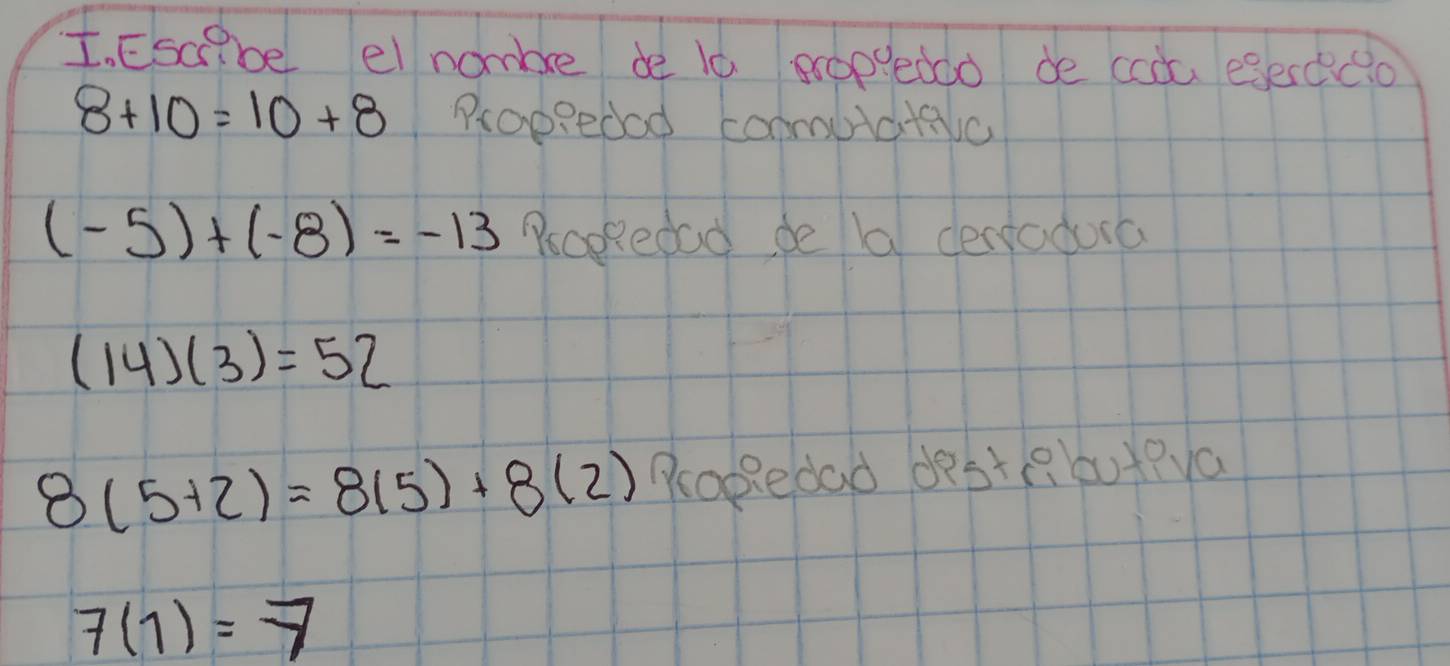 I. Escribe el nombre de la propiedad de cada ejercicio
8+10=10+8 Propiedad conmutativa
(-5)+(-8)=-13 Propiedad de la cerradura
(14)(3)=52
8(5+2)=8(5)+8(2) Propiedad distributiva
7(1)=7